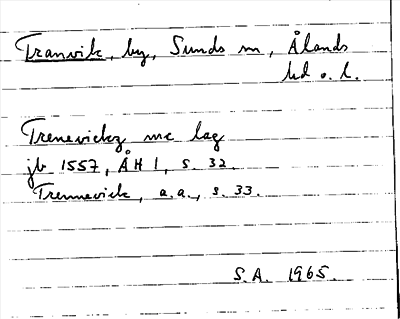 Tranvik, by, Sunds sn, Ålands
hd o. l.
Trenevickz me lag
jb 1557, ÅH 1, s. 32.
Trennevick, a.a., s. 33.
S.A. 1965.